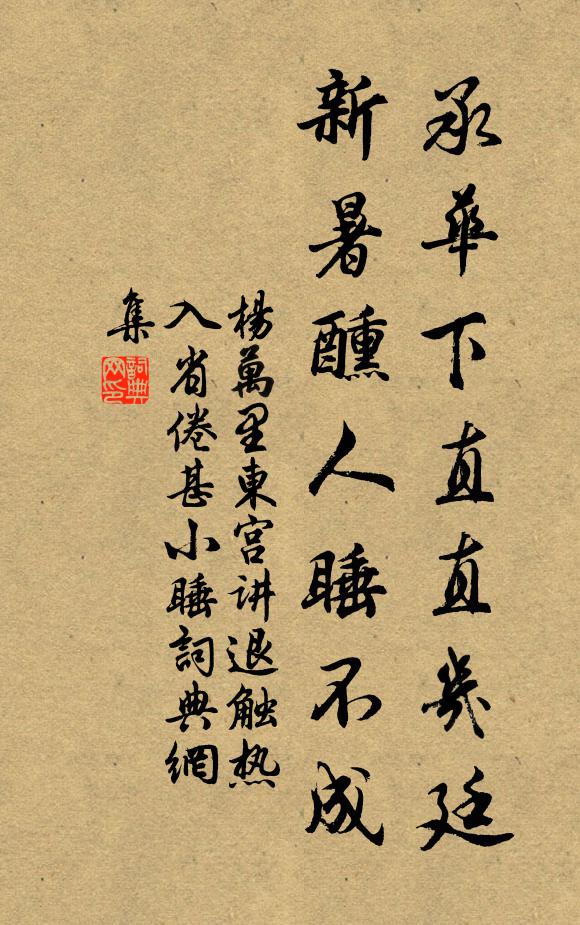 承華下直直幾廷
新暑醺人睡不成
楊萬里東宫讲退触热
入省倦甚小睡詞典網
集
詞典
网印